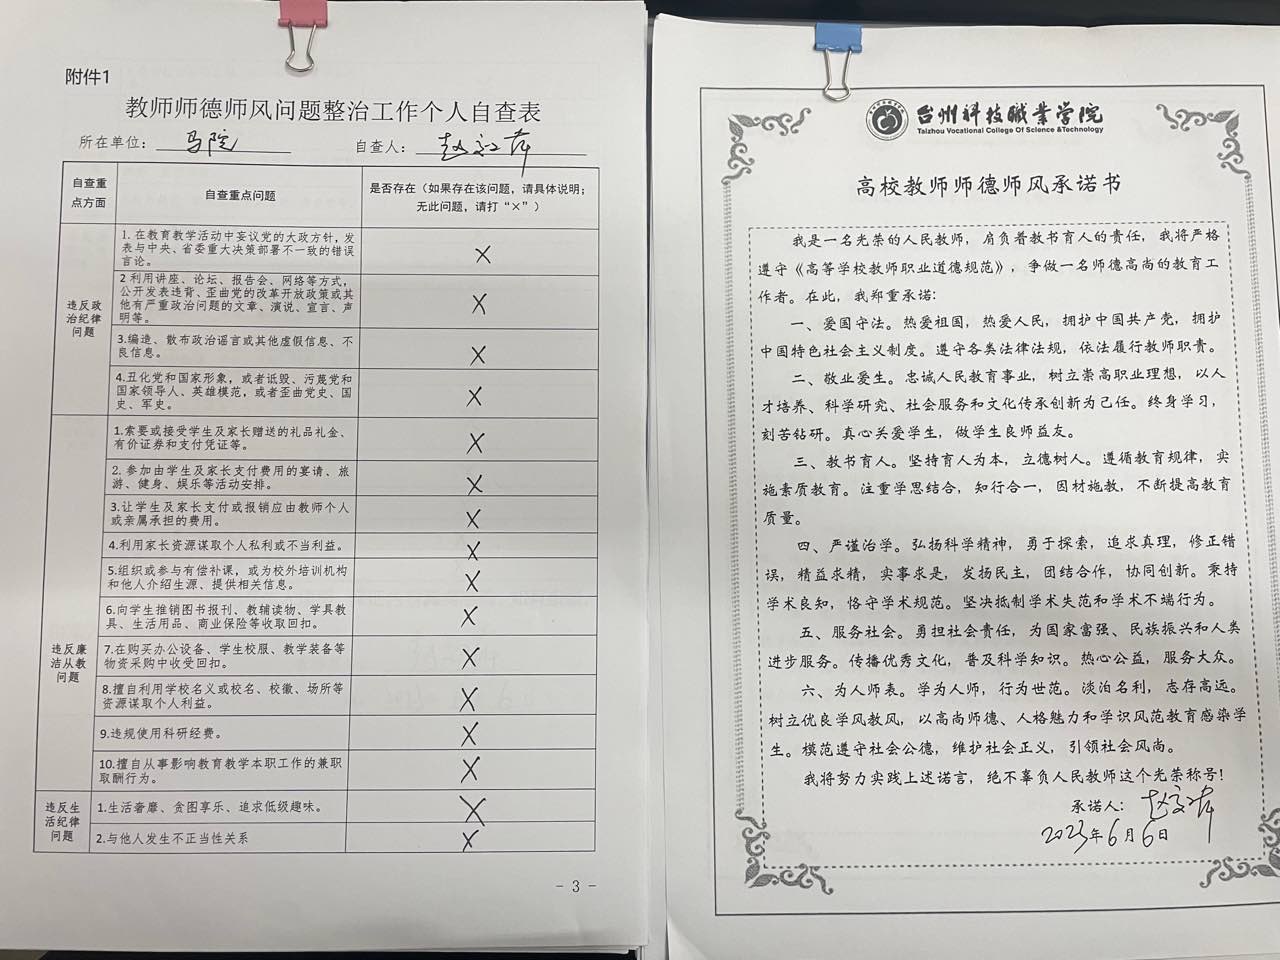 附件1
教师师德师风问题整治工作个人自查表
所在单位：马院 自查人：
自查重点方面
自查重点问题
是否存在（如果存在该问题，请具体说明；
无此问题，请打“×”）
违反政治纪律问题
1.在教育教学活动中妄议党的大政方针，发
表与中央、省委重大决策部署不一致的错误
言论。
×
2 利用讲座、论坛、报告会、网络等方式，
公开发表违背、歪曲党的改革开放政策或其
他有严重政治问题的文章、演说、宣言、声
明等。
×
3.编造、散布政治谣言或其他虚假信息、不
良信息。
×
4.丑化党和国家形象，或者诋毁、污蔑党和
国家领导人、英雄模范，或者歪曲党史、国
史、军史。
×
违反廉洁从教问题
1.索要或接受学生及家长赠送的礼品礼金、
有价证券和支付凭证等。
×
2.参加由学生及家长支付费用的宴请、旅
游、健身、娱乐等活动安排。
×
3.让学生及家长支付或报销应由教师个人
或亲属承担的费用。
×
4.利用家长资源谋取个人私利或不当利益。
×
5.组织或参与有偿补课，或为校外培训机构
和他人介绍生源、提供相关信息。
×
6.向学生推销图书报刊、教辅读物、学具教
具、生活用品、商业保险等收取回扣。
×
7.在购买办公设备、学生校服、教学装备等
物资采购中收受回扣。
×
8.擅自利用学校名义或校名、校徽、场所等
资源谋取个人利益。
×
9.违规使用科研经费。
×
10.擅自从事影响教育教学本职工作的兼职
取酬行为。
×
违反生活纪律问题
1.生活奢靡、贪图享乐、追求低级趣味。
×
2.与他人发生不正当性关系
×
- 3 -
台州科技職業学院
Taizhou Vocational College Of Science &Technology
高校教师师德师风承诺书
我是一名光荣的人民教师，肩负着教书育人的责任，我将严格
遵守《高等学校教师职业道德规范》，争做一名师德高尚的教育工
作者。在此，我郑重承诺：
一、爱国守法。热爱祖国，热爱人民，拥护中国共产党，拥护
中国特色社会主义制度。遵守各类法律法规，依法履行教师职责。
二、敬业爱生。忠诚人民教育事业，树立崇高职业理想，以人
才培养、科学研究、社会服务和文化传承创新为己任。终身学习，
刻苦钻研。真心关爱学生，做学生良师益友。
三、教书育人。坚持育人为本，立德树人。遵循教育规律，实
施素质教育。注重学思结合，知行合一，因材施教，不断提高教育
质量。
四、严谨治学。弘扬科学精神，勇于探索，追求真理，修正错
误，精益求精，实事求是，发扬民主，团结合作，协同创新。秉持
学术良知，恪守学术规范。坚决抵制学术失范和学术不端行为。
五、服务社会。勇担社会责任，为国家富强、民族振兴和人类
进步服务。传播优秀文化，普及科学知识。热心公益，服务大众。
六、为人师表。学为人师，行为世范。淡泊名利，志存高远。
树立优良学风教风，以高尚师德、人格魅力和学识风范教育感染学
生。模范遵守社会公德，维护社会正义，引领社会风尚。
我将努力实践上述诺言，绝不辜负人民教师这个光荣称号！
承诺人：
2023年6月6日